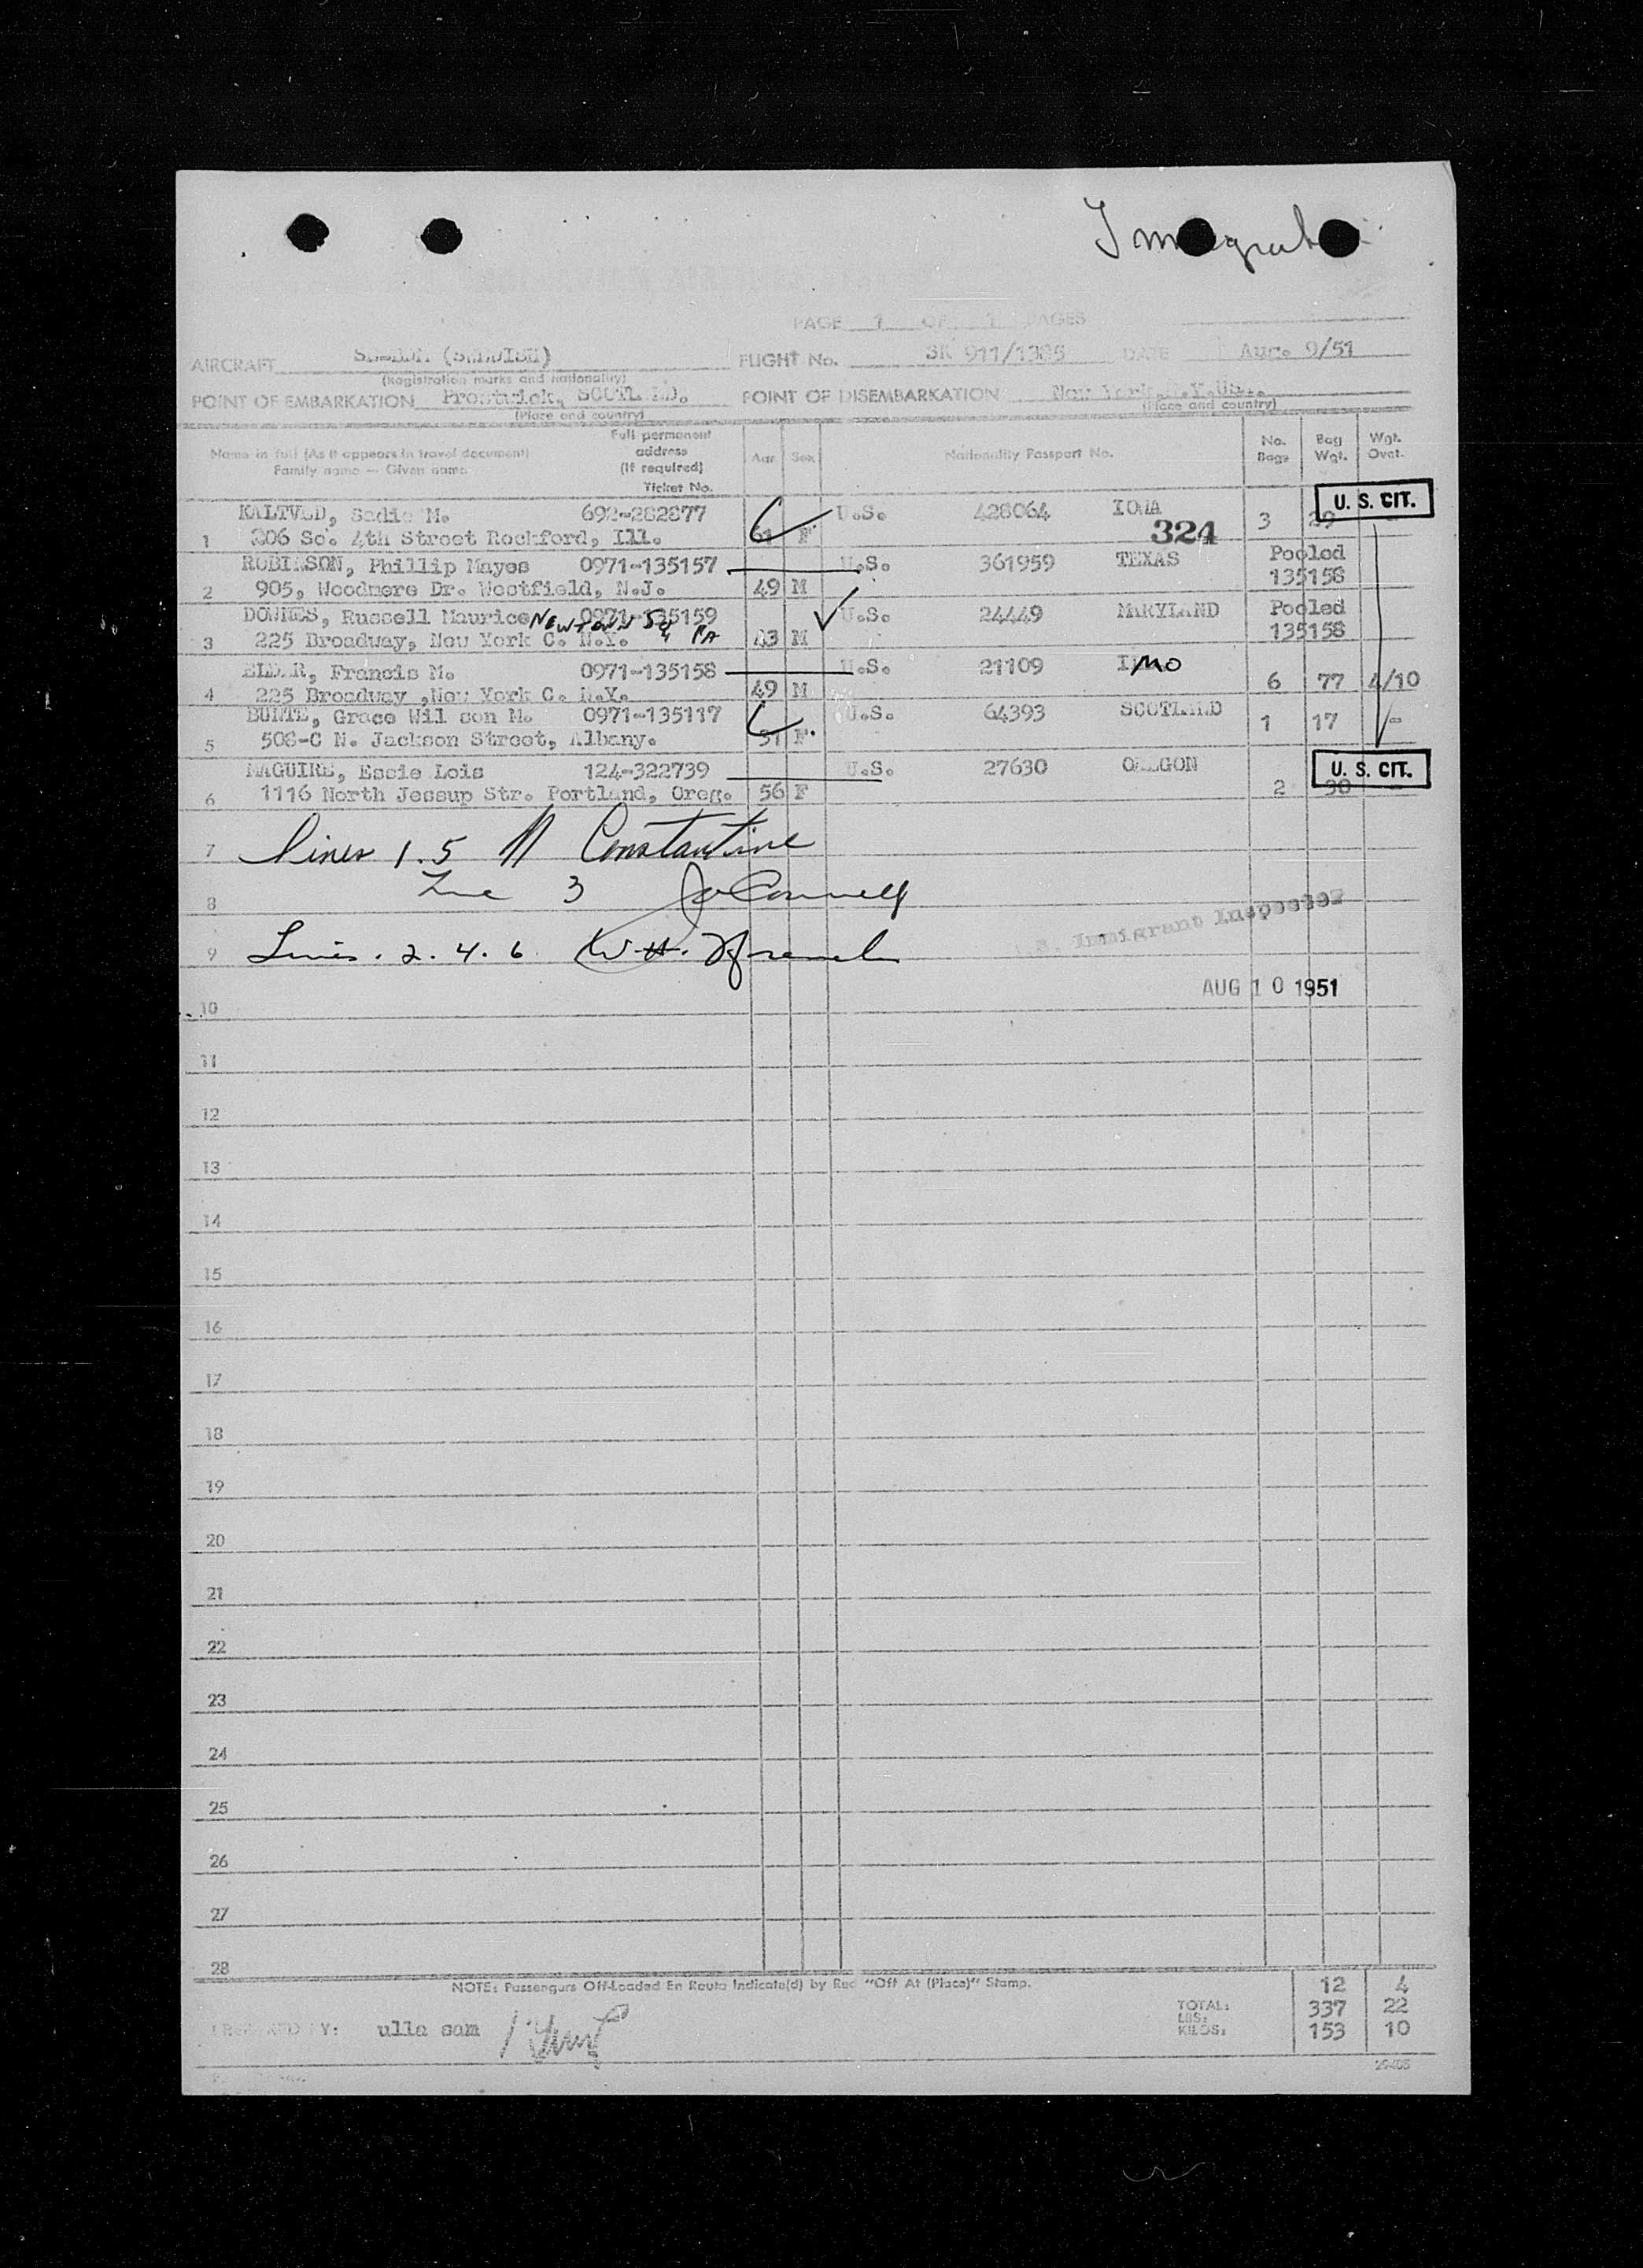 PAGE 1 OF 1 PAGES
AIRCRAFT (SWEDISH) FLIGHT No. SK 911/1385 DATE Aug. 9/51
(Registration marks and nationality)
POINT OF EMBARKATION Prestwick, SCOTLAND. POINT OF DISEMBARKATION New York, N.Y. USA.
(Place and country) (Place and country)
Name in full (As it appears in travel document)
Family name — Given name
Full permanent
address
(If required)
Ticket No.
Age Sex Nationality Passport No. No. Bags Bag Wgt. Wgt. Ovet.
KALTVED, Sadie M. 692-282877 U.S. 428064 IOWA 3 29 U. S. CIT.
1 306 So. 4th Street Rockford, Ill. 61 F 324
ROBINSON, Phillip Mayes 0971-135157 U.S. 361959 TEXAS Pooled
2 905, Woodmere Dr. Westfield, N.J. 49 M 135158
DOWNES, Russell Maurice 0971-135159 U.S. 24449 MARYLAND Pooled
NEWTOWN SQ PA
3 225 Broadway, New York C. N.Y. 43 M 135158
ELDER, Francis M. 0971-135158 U.S. 21109 MO
4 225 Broadway ,New York C. N.Y. 49 M 6 77 4/10
BUNTE, Grace Wil son M. 0971-135117 U.S. 64393 SCOTLAND 1 17 -
5 508-C N. Jackson Street, Albany. 51 F.
MAGUIRE, Essie Lois 124-322739 U.S. 27630 OREGON U. S. CIT.
6 1116 North Jessup Str. Portland, Oreg. 56 F 2 30 -
7 Lines 1.5 Constantine
8 Line 3
9 Lines. 2. 4. 6. W.H.
Immigrant Inspector
AUG 10 1951
10
11
12
13
14
15
16
17
18
19
20
21
22
23
24
25
26
27
28
NOTE: Passengers Off-Loaded En Route Indicate(d) by Red "Off At (Place)" Stamp.
12 4
TOTAL:
LBS: 337 22
KILOS: 153 10
PREPARED BY: ulla sam